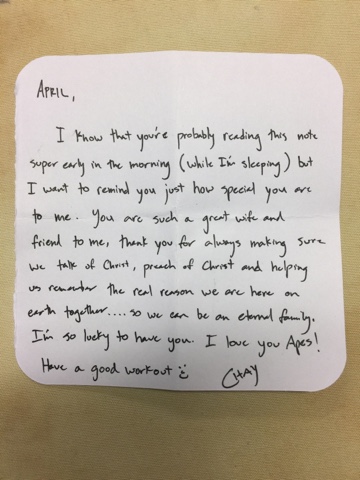 April,
I know that you're probably reading this note
super early in the morning (while I'm sleeping) but
I want to remind you just how special you are
to me. You are such a great wife and
friend to me, thank you for always making sure
we talk of Christ, preach of Christ and helping
us remember the real reason we are here on
earth together....so we can be an eternal family.
I'm so lucky to have you. I love you Apes!
Have a good workout :)
Chay